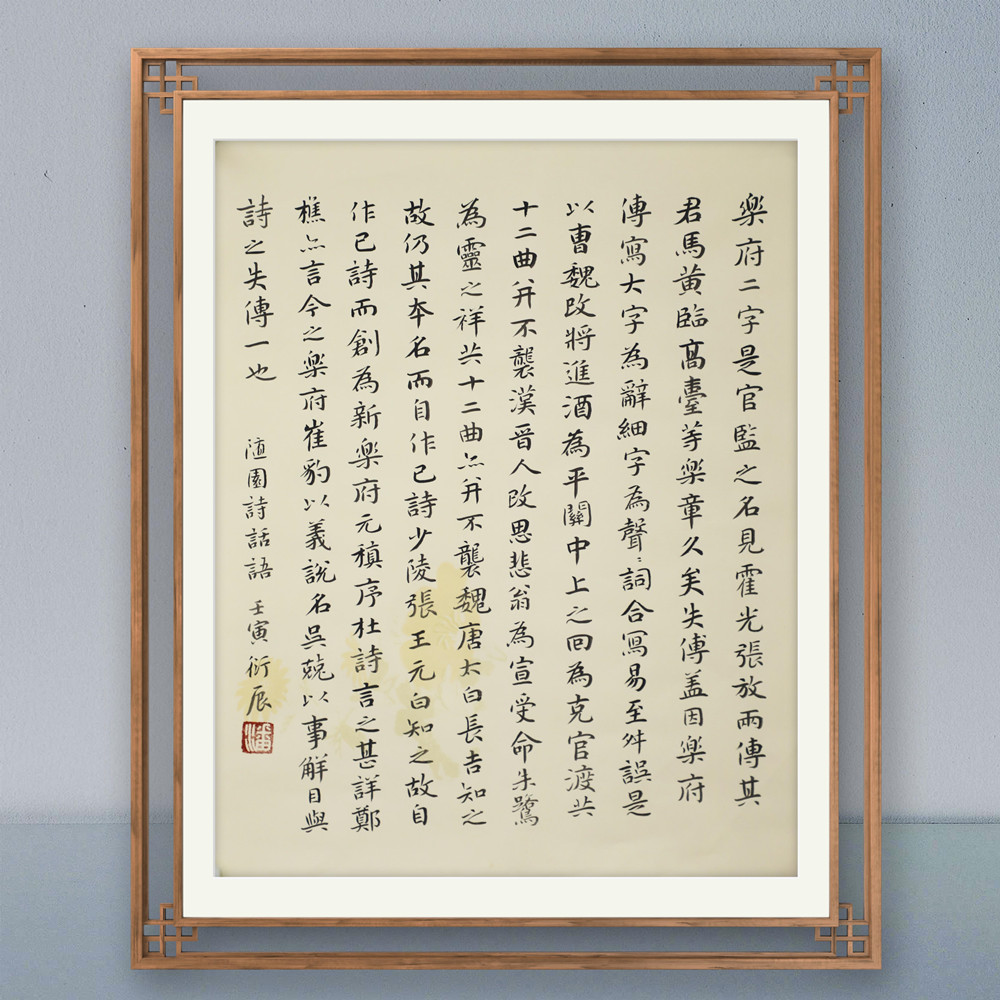 樂府二字是官監之名見霍光張放兩傳其
君馬黃臨高臺等樂章久矣失傳蓋因樂府
傳寫大字為辭細字為聲〻詞合寫易至舛誤是
以曹魏改將進酒為平關中上之回為克官渡共
十二曲并不襲漢晉人改思悲翁為宣受命朱鷺
為靈之祥共十二曲亦并不襲魏唐太白長吉知之
故仍其本名而自作己詩少陵張王元白知之故自
作己詩而創為新樂府元稹序杜詩言之甚詳鄭
樵亦言今之樂府崔豹以義說名吳兢以事解目與
詩之失傳一也
隨園詩話語 壬寅 衍辰
潘